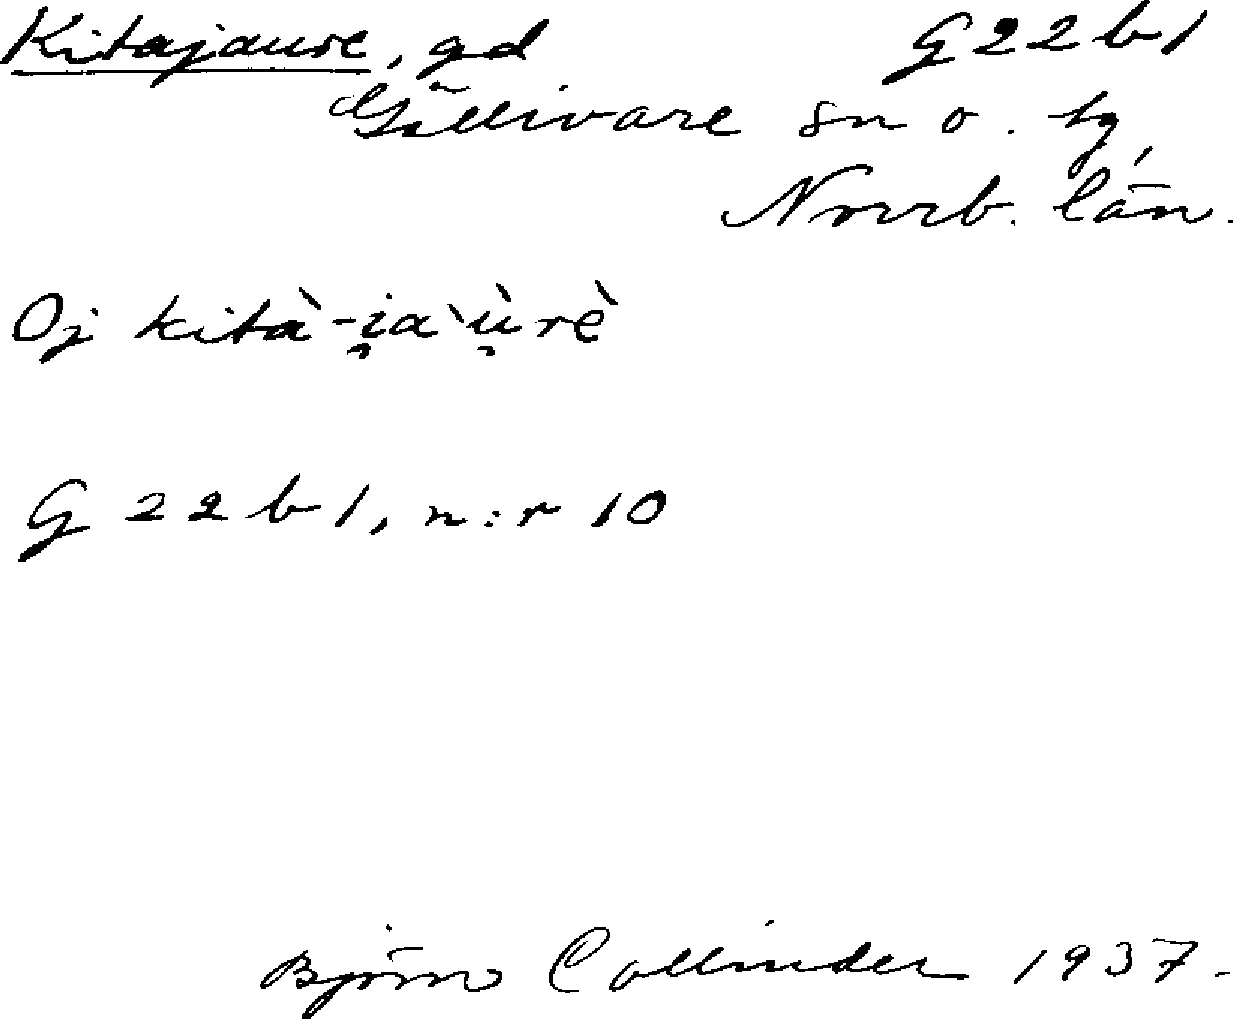 Kitajaure, gd G22b1
Gällivare sn o. tg,
Norrb. län.
Oj kità-i̯aˋù̯rè
G 22b1, n:r 10
Björn Collinder 1937.